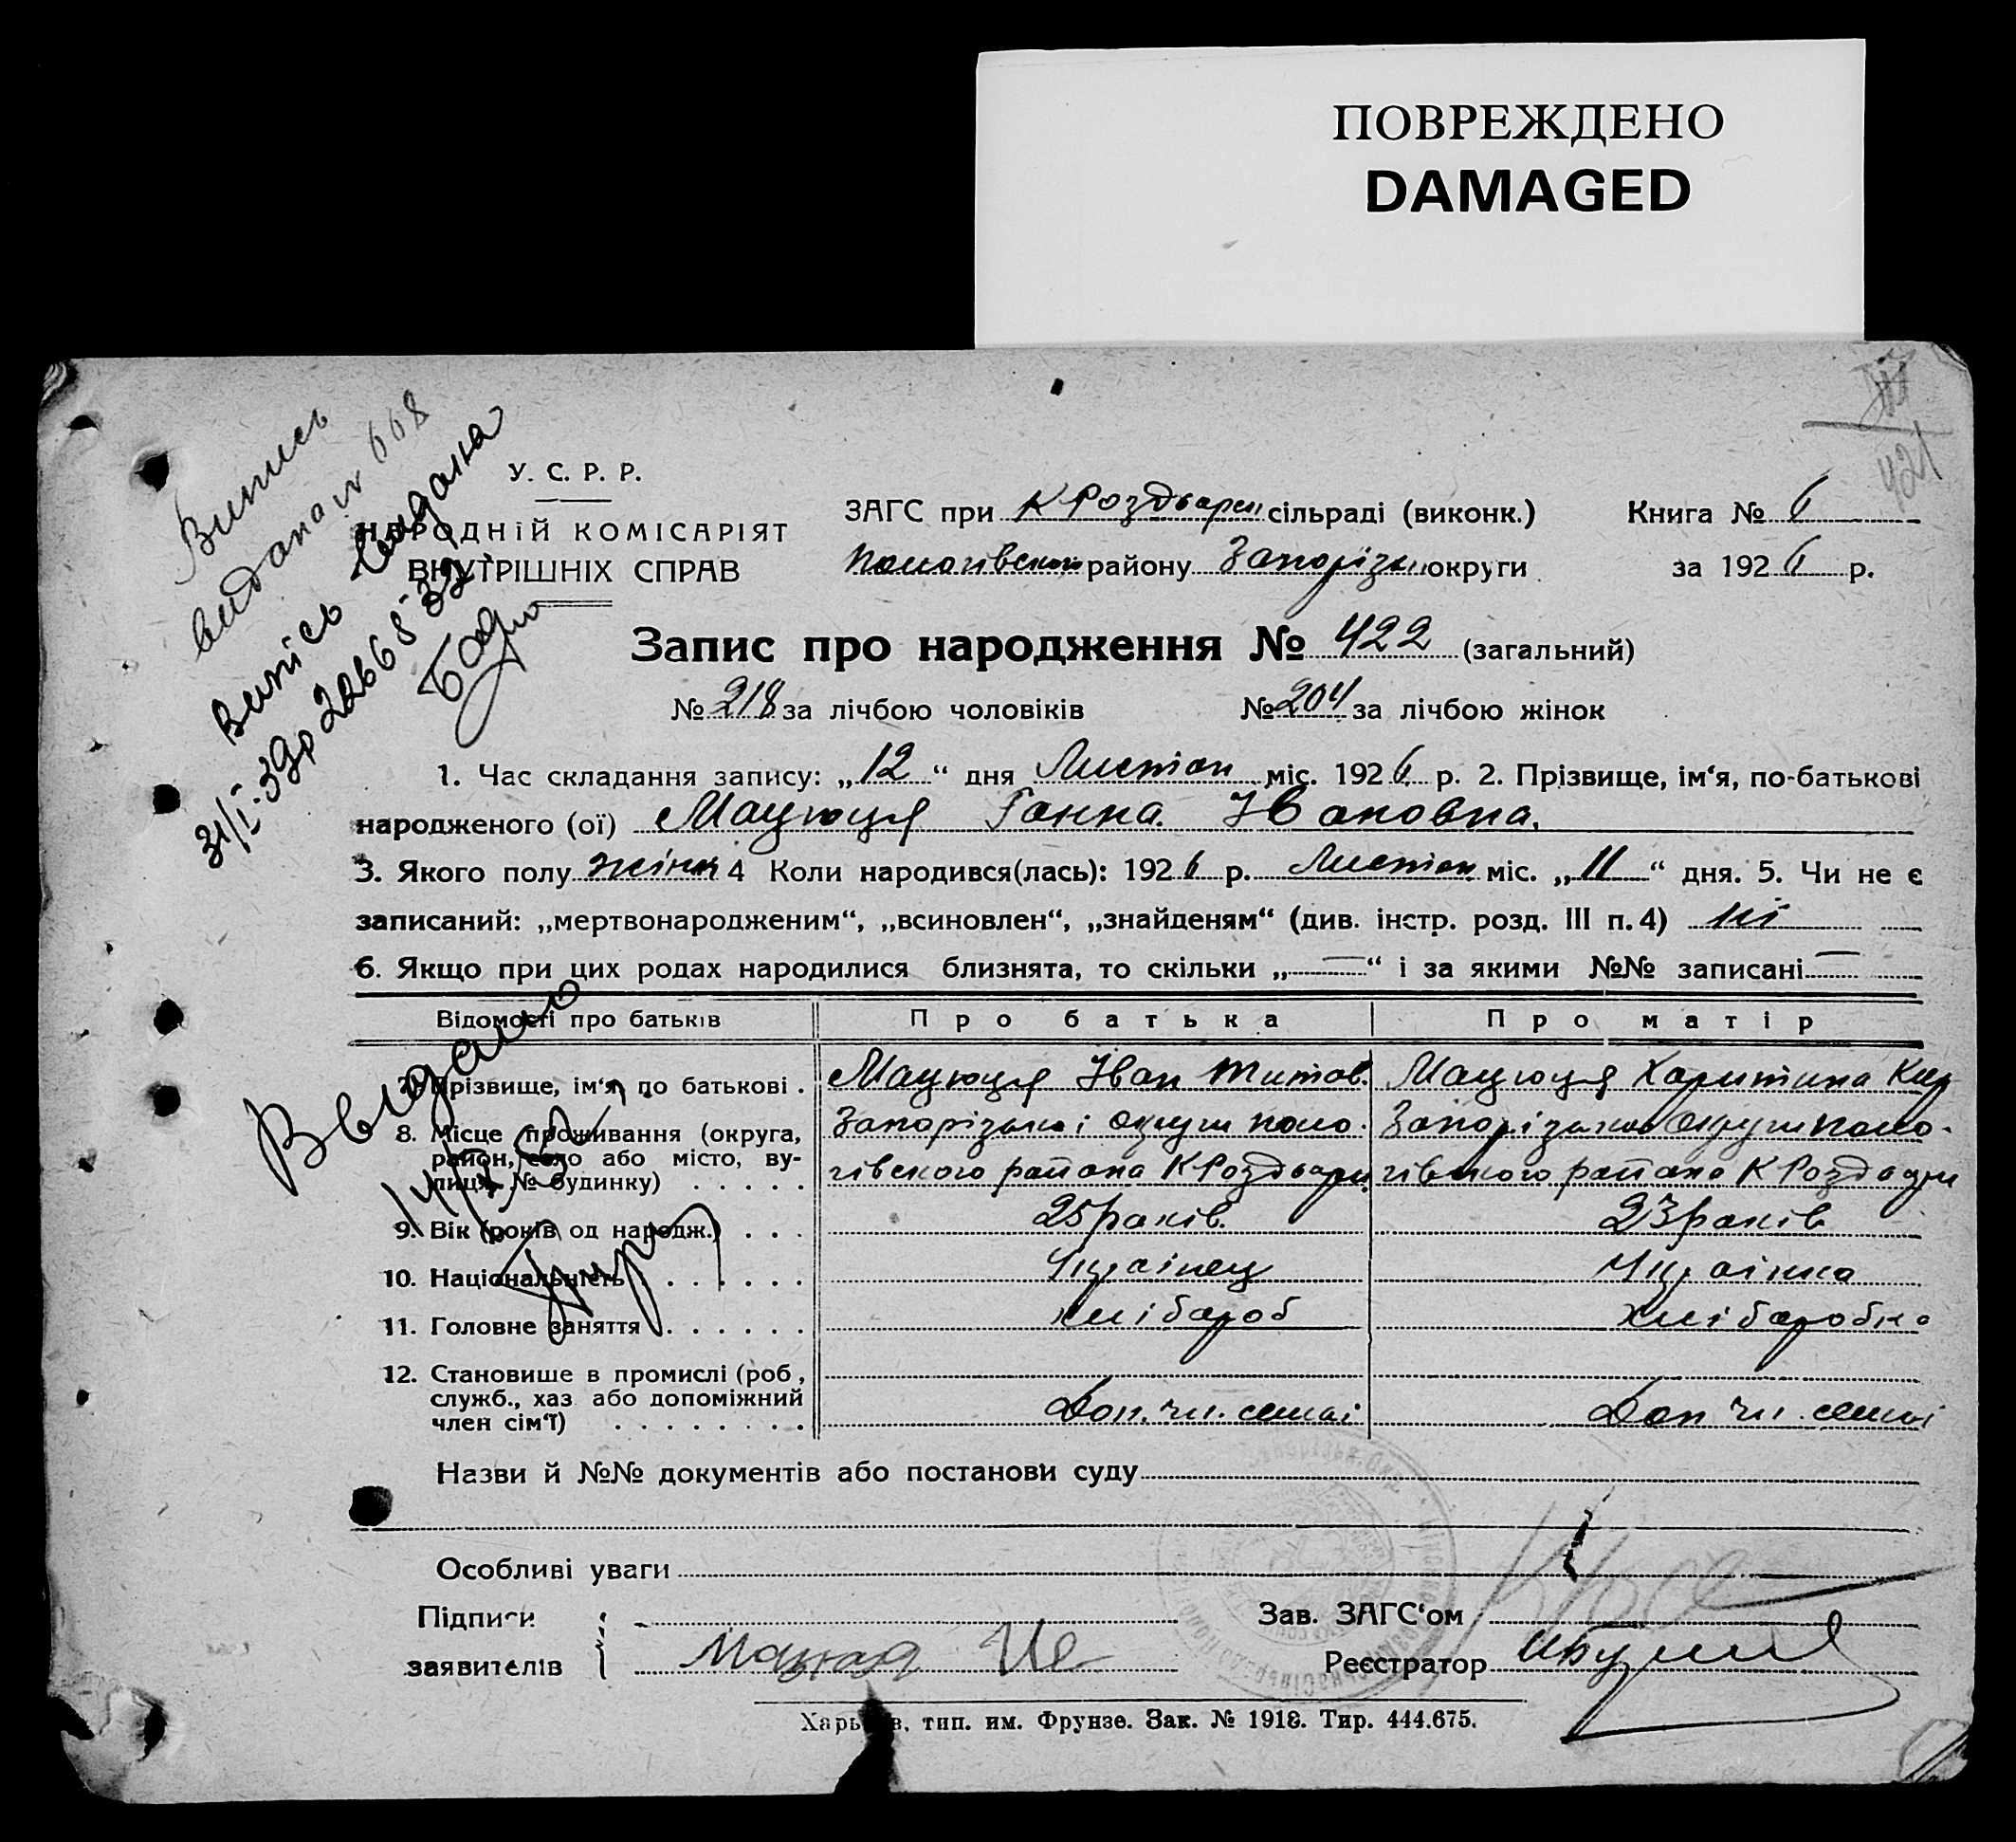 ПОВРЕЖДЕНО
DAMAGED
421
Випись
видана № 668
Випісь видана
У. С. Р. Р.
НАРОДНІЙ КОМІСАРІЯТ
ВНУТРІШНІХ СПРАВ
ЗАГС при К Роздварсп сільраді (виконк.)
Книга № 6
Пологівского району Запорізьк округи
за 1926 р.
Запис про народження № 422 (загальний)
№ 218 за лічбою чоловіків № 204 за лічбою жінок
1. Час складання запису: „12“ дня Листоп міс. 1926 р. 2. Прізвище, ім‘я, по-батькові
народженого (ої) Мацюця Ганна Івановна.
3. Якого полу жіноч 4 Коли народився(лась): 1926 р. Листоп міс. „11“ дня. 5. Чи не є
записаний: „мертвонародженим“, „всиновлен“, „знайденям“ (див. інстр. розд. III п. 4) ні
6. Якщо при цих родах народилися близнята, то скільки „—“ і за якими №№ записані —
Відомості про батьків Про батька Про матір
7. Прізвище, ім‘я, по батькові . Мацюця Іван Титов. Мацюця Харитина Кир
8. Місце проживання (округа, район, село або місто, вулиця, № будинку) . . . . .
Запорізької округи Поло-
гівского району К Роздори
Запорізької округи Поло-
гівского району К Роздори
9. Вік (років од народж.) . . . 25 років. 23 років
10. Національність . . . . . . Українец Українка
11. Головне заняття . . . . . . хлібароб хлібаробка
12. Становище в промислі (роб., служб., хаз або допоміжний член сім‘ї) . . . . . . . .
Доп. чл. семьі Доп чл. семьі
Видано
Назви й №№ документів або постанови суду
Особливі уваги
Підписи
заявителів
Зав. ЗАГС‘ом
Реєстратор
Харьков, тип. им. Фрунзе. Зак. № 1918. Тир. 444.675.